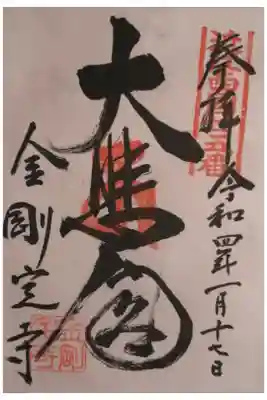 奉拝 令和四年一月十七日
大悲閣
金剛定寺